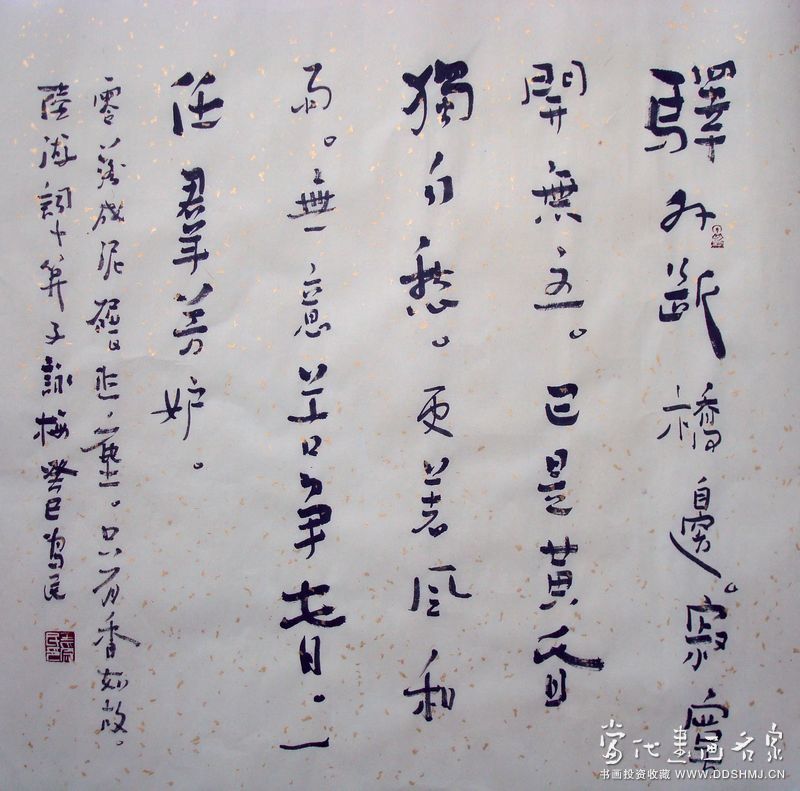 驛外斷橋邊。寂寞
開無主。已是黃昏
獨自愁。更著風和
雨。無意苦爭春。一
任君羊芳妒。
零落成泥碾作塵。只有香如故。
陸游詞卜算子詠梅 癸巳
當代書畫名家
书画投资收藏 WWW.DDSHMJ.CN